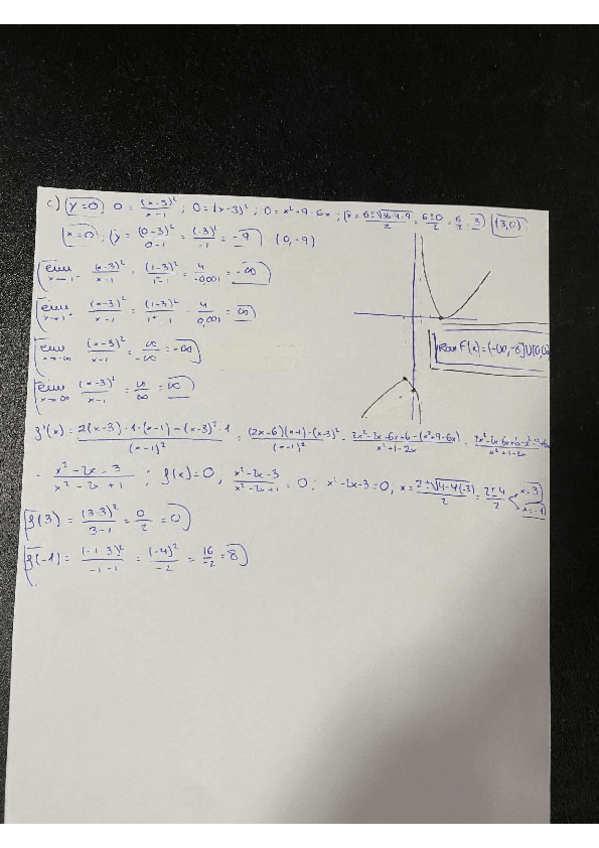 c) y=0, 0 = (x-3)²/x-1 ; 0=(x-3)² ; 0=x²+9-6x ; x = 6±√36-4·9/2 = 6±0/2 = 6/2 = 3 (3,0)
x=0 ; y = (0-3)²/0-1 = (-3)²/-1 = -9 (0,-9)
lim x→1⁻ (x-3)²/x-1 = (1-3)²/1⁻-1 = 4/-0,001 = -∞
lim x→1⁺ (x-3)²/x-1 = (1-3)²/1⁺-1 = 4/0,001 = ∞
lim x→-∞ (x-3)²/x-1 = ∞/-∞ = -∞
Rom F(x)=(-∞,-8]U[0,∞)
lim x→∞ (x-3)²/x-1 = ∞/∞ = ∞
f'(x) = 2(x-3)·1·(x-1)-(x-3)²·1/(x-1)² = (2x-6)(x-1)-(x-3)²/(x-1)² = 2x²-2x-6x+6-(x²+9-6x)/x²+1-2x =
= x²-2x-3/x²-2x+1 ; f(x)=0, x²-2x-3/x²-2x+1 = 0 ; x²-2x-3=0, x = 2±√4-4(-3)/2 = 2±4/2 x=3 x=-1
f(3) = (3-3)²/3-1 = 0/2 = 0
f(-1) = (-1-3)²/-1-1 = (-4)²/-2 = 16/-2 = 8